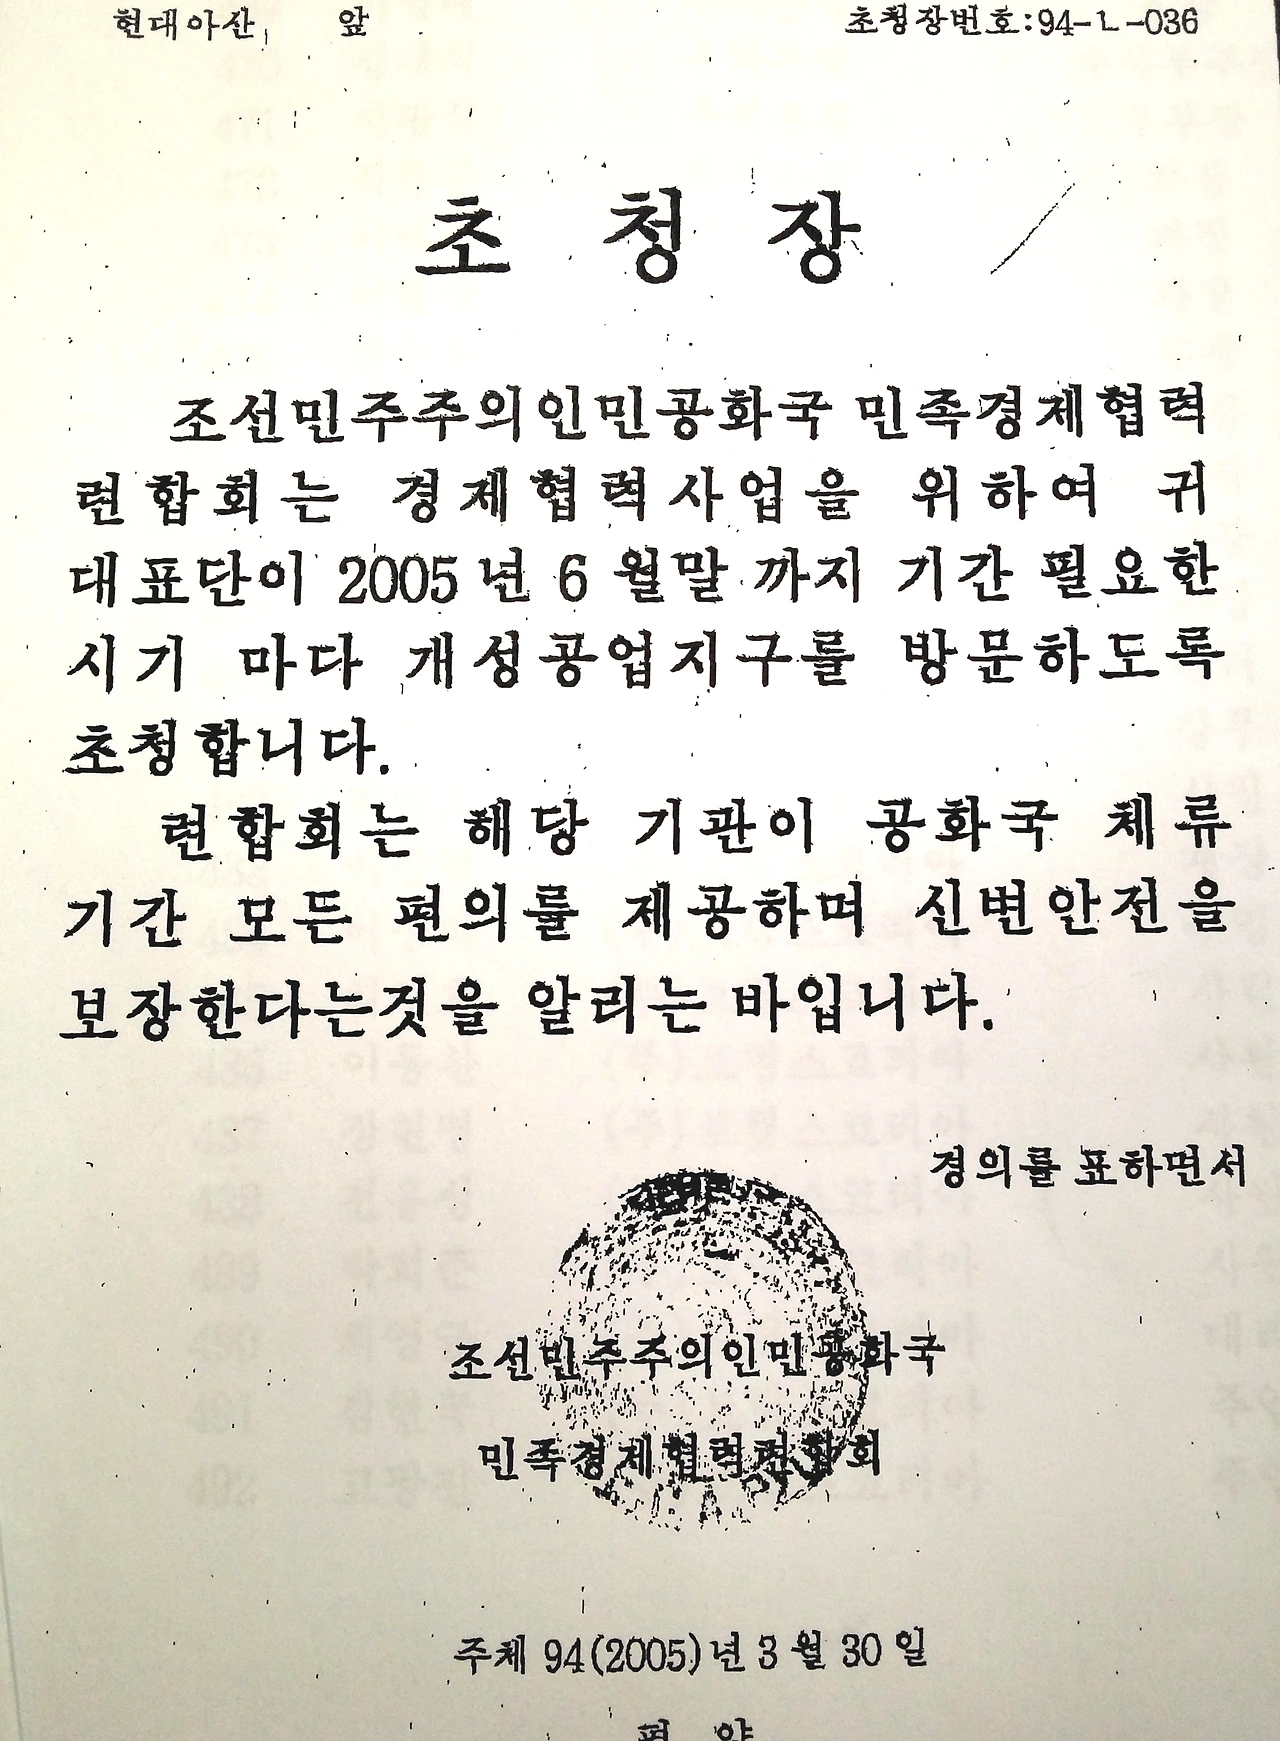 현대아산 앞 초청장번호:94-ㄴ-036
초 청 장
조선민주주의인민공화국 민족경제협력
련합회는 경제협력사업을 위하여 귀
대표단이 2005년 6월말 까지 기간 필요한
시기 마다 개성공업지구를 방문하도록
초청합니다.
련합회는 해당 기관이 공화국 체류
기간 모든 편의를 제공하며 신변안전을
보장한다는것을 알리는 바입니다.
경의를 표하면서
조선민주주의인민공화국
민족경제협력련합회
주체 94(2005)년 3월 30일
평 양